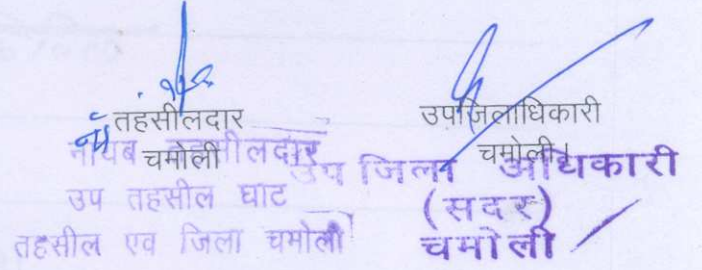 ना० तहसीलदार
चमोली
नायब तहसीलदार
उप तहसील घाट
तहसील एव जिला चमोली
उपजिलाधिकारी
चमोली।
उप जिला अधिकारी
(सदर)
चमोली